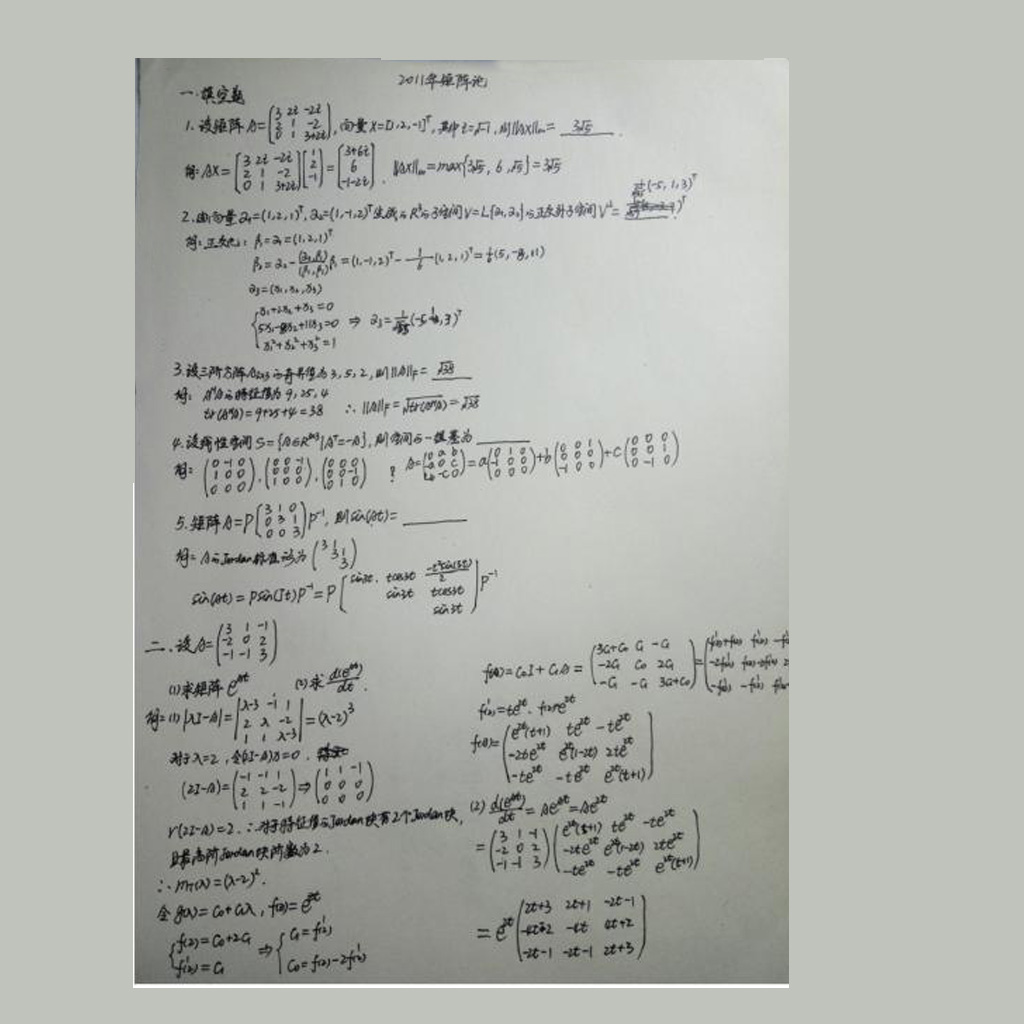 2011年矩阵论
一.填空题
1.设矩阵A=(3 2i -2i; 2 1 -2; 0 1 3+2i),向量X=[1,2,-1]ᵀ,其中i=√-1,则||AX||∞= 3√5 .
解:AX=[3 2i -2i; 2 1 -2; 0 1 3+2i][1; 2; -1]=[3+6i; 6; -1-2i]. ||AX||∞=max{3√5, 6, √5}=3√5
2.由向量α₁=(1,2,1)ᵀ,α₂=(1,-1,2)ᵀ生成的R³的子空间V=L{α₁,α₂}的正交补子空间V⊥= (-5,1,3)ᵀ
解:正交化:β₁=α₁=(1,2,1)ᵀ
β₂=α₂-(α₂,β₁)/(β₁,β₁)β₁=(1,-1,2)ᵀ-1/6(1,2,1)ᵀ=1/6(5,-8,11)
α₃=(x₁,x₂,x₃)
{x₁+2x₂+x₃=0
5x₁-8x₂+11x₃=0 ⇒ α₃=1/√35(-5,1,3)ᵀ
x₁²+x₂²+x₃²=1
3.设三阶方阵A₃ₓ₃的奇异值为3,5,2,则||A||F= √38
解:AᴴA的特征值为9,25,4
tr(AᴴA)=9+25+4=38 ∴||A||F=√tr(AᴴA)=√38
4.设线性空间S={A∈R³ˣ³|Aᵀ=-A},则空间的一组基为
解:(0 -1 0; 1 0 0; 0 0 0),(0 0 -1; 0 0 0; 1 0 0),(0 0 0; 0 0 -1; 0 1 0) ? A=(0 a b; -a 0 c; -b -c 0)=a(0 1 0; -1 0 0; 0 0 0)+b(0 0 1; 0 0 0; -1 0 0)+c(0 0 0; 0 0 1; 0 -1 0)
5.矩阵A=P[3 1 0; 0 3 1; 0 0 3]P⁻¹,则sin(At)=
解:A的Jordan标准形为(3 1; 3 1; 3)
sin(At)=Psin(Jt)P⁻¹=P[sin3t tcos3t -t²sin(3t)/2; sin3t tcos3t; sin3t]P⁻¹
二.设A=(3 1 -1; -2 0 2; -1 -1 3)
(1)求矩阵eᴬᵗ (2)求d(eᴬᵗ)/dt.
解:(1)|λI-A|=|λ-3 -1 1; 2 λ -2; 1 1 λ-3|=(λ-2)³
对于λ=2,令(2I-A)x=0.
(2I-A)=(-1 -1 1; 2 2 -2; 1 1 -1)⇒(1 1 -1; 0 0 0; 0 0 0)
r(2I-A)=2.∴对于特征值的Jordan块有2个Jordan块,
且最高阶Jordan块阶数为2.
∴m(λ)=(λ-2)².
令g(λ)=C₀+C₁λ,f(λ)=e^λt
{f(2)=C₀+2C₁ ⇒ {C₁=f'(2)
f'(2)=C₁ C₀=f(2)-2f'(2)
f(A)=C₀I+C₁A=(3C₁+C₀ C₁ -C₁; -2C₁ C₀ 2C₁; -C₁ -C₁ 3C₁+C₀)=
f'(2)=te²ᵗ.f(2)=e²ᵗ
f(A)=(e²ᵗ(t+1) te²ᵗ -te²ᵗ; -2te²ᵗ e²ᵗ(1-2t) 2te²ᵗ; -te²ᵗ -te²ᵗ e²ᵗ(t+1))
(2)d(eᴬᵗ)/dt=Aeᴬᵗ=Ae²ᵗ
=(3 1 -1; -2 0 2; -1 -1 3)(e²ᵗ(t+1) te²ᵗ -te²ᵗ; -2te²ᵗ e²ᵗ(1-2t) 2te²ᵗ; -te²ᵗ -te²ᵗ e²ᵗ(t+1))
=e²ᵗ(2t+3 2t+1 -2t-1; -4t-2 -4t 4t+2; -2t-1 -2t-1 2t+3)